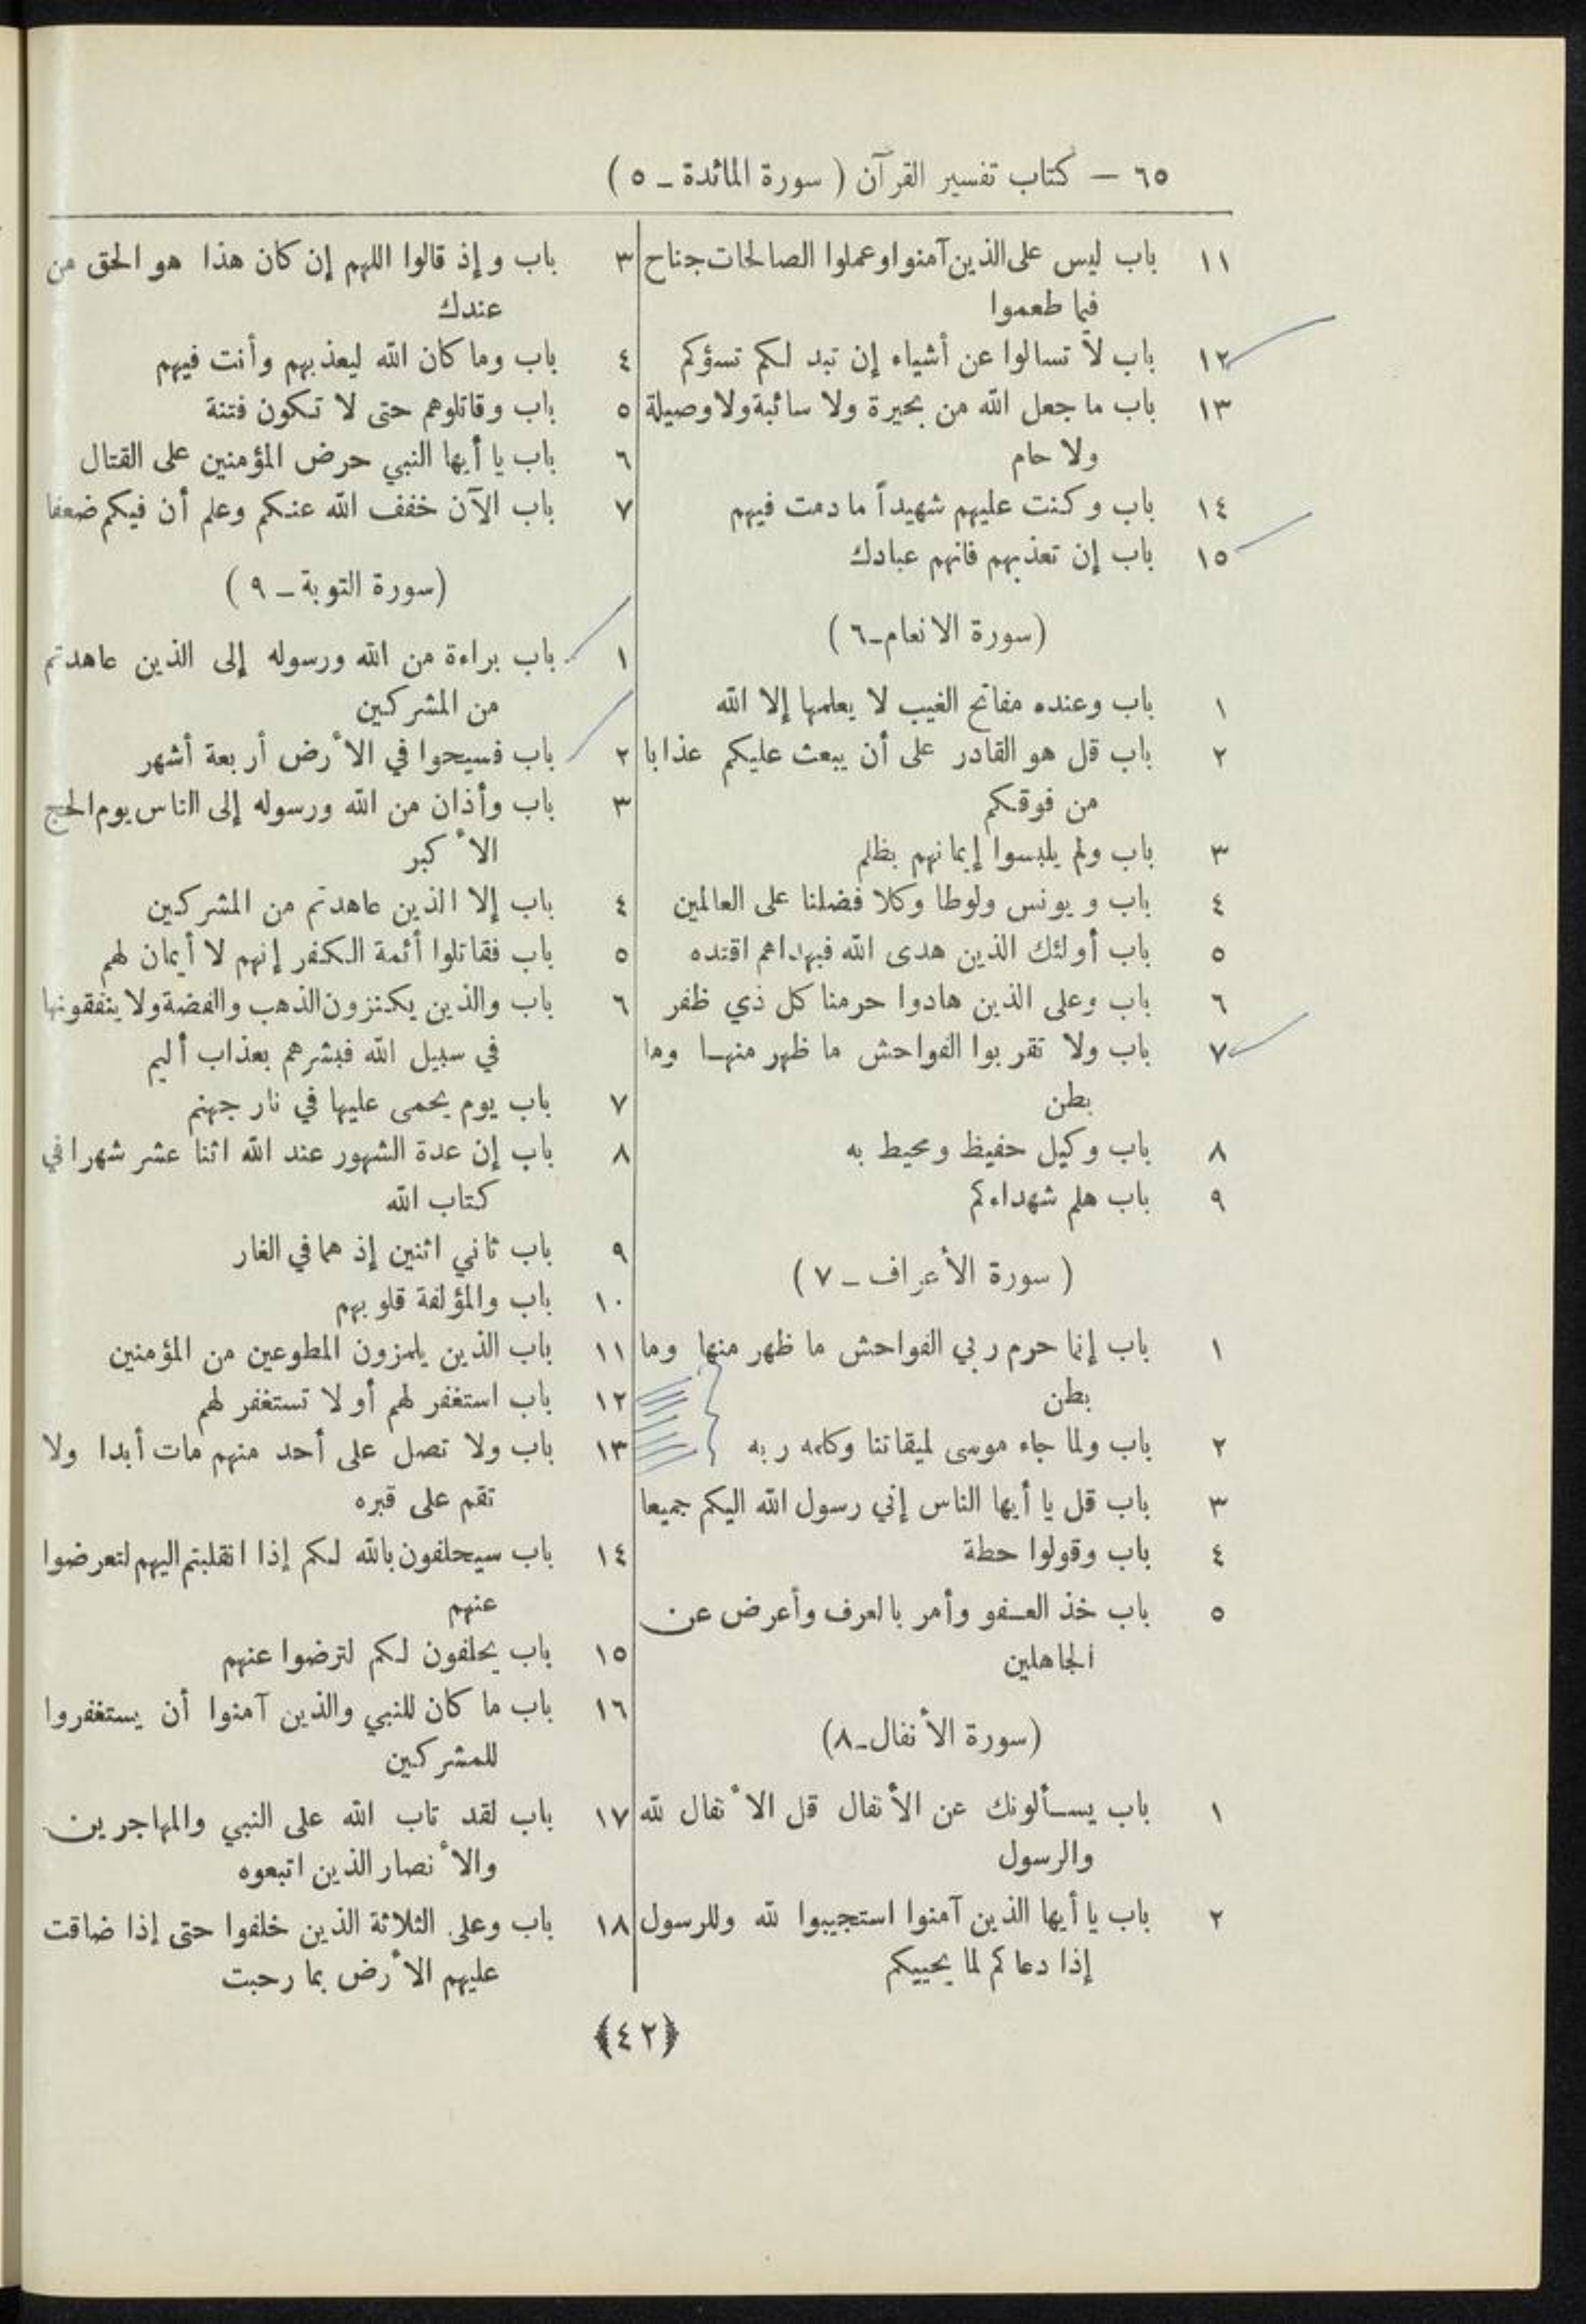 ٦٥ — كتاب تفسير القرآن ( سورة المائدة ـ ٥ )
١١ باب ليس على الذين آمنوا وعملوا الصالحات جناح
فيما طعموا
١٢ باب لا تسالوا عن أشياء إن تبد لكم تسؤكم
١٣ باب ما جعل الله من بحيرة ولا سائبة ولا وصيلة
ولا حام
١٤ باب وكنت عليهم شهيداً ما دمت فيهم
١٥ باب إن تعذبهم فانهم عبادك
(سورة الانعام ـ ٦)
١ باب وعنده مفاتح الغيب لا يعلمها إلا الله
٢ باب قل هو القادر على أن يبعث عليكم عذابا
من فوقكم
٣ باب ولم يلبسوا إيمانهم بظلم
٤ باب ويونس ولوطا وكلا فضلنا على العالمين
٥ باب أولئك الذين هدى الله فبهداهم اقتده
٦ باب وعلى الذين هادوا حرمنا كل ذي ظفر
٧ باب ولا تقربوا الفواحش ما ظهر منها وما
بطن
٨ باب وكيل حفيظ ومحيط به
٩ باب هلم شهداءكم
( سورة الأعراف ـ ٧ )
١ باب إنما حرم ربي الفواحش ما ظهر منها وما
بطن
٢ باب ولما جاء موسى لميقاتنا وكلمه ربه
٣ باب قل يا أيها الناس إني رسول الله اليكم جميعا
٤ باب وقولوا حطة
٥ باب خذ العفو وأمر بالعرف وأعرض عن
الجاهلين
(سورة الأنفال ـ ٨)
١ باب يسألونك عن الأنفال قل الأنفال لله
والرسول
٢ باب يا أيها الذين آمنوا استجيبوا لله وللرسول
إذا دعاكم لما يحييكم
٣ باب وإذ قالوا اللهم إن كان هذا هو الحق من
عندك
٤ باب وما كان الله ليعذبهم وأنت فيهم
٥ باب وقاتلوهم حتى لا تكون فتنة
٦ باب يا أيها النبي حرض المؤمنين على القتال
٧ باب الآن خفف الله عنكم وعلم أن فيكم ضعفا
(سورة التوبة ـ ٩ )
١ باب براءة من الله ورسوله إلى الذين عاهدتم
من المشركين
٢ باب فسيحوا في الأرض أربعة أشهر
٣ باب وأذان من الله ورسوله إلى الناس يوم الحج
الأكبر
٤ باب إلا الذين عاهدتم من المشركين
٥ باب فقاتلوا أئمة الكفر إنهم لا أيمان لهم
٦ باب والذين يكنزون الذهب والفضة ولا ينفقونها
في سبيل الله فبشرهم بعذاب أليم
٧ باب يوم يحمى عليها في نار جهنم
٨ باب إن عدة الشهور عند الله اثنا عشر شهرا في
كتاب الله
٩ باب ثاني اثنين إذ هما في الغار
١٠ باب والمؤلفة قلوبهم
١١ باب الذين يلمزون المطوعين من المؤمنين
١٢ باب استغفر لهم أو لا تستغفر لهم
١٣ باب ولا تصل على أحد منهم مات أبدا ولا
تقم على قبره
١٤ باب سيحلفون بالله لكم إذا انقلبتم اليهم لتعرضوا
عنهم
١٥ باب يحلفون لكم لترضوا عنهم
١٦ باب ما كان للنبي والذين آمنوا أن يستغفروا
للمشركين
١٧ باب لقد تاب الله على النبي والمهاجرين
والأنصار الذين اتبعوه
١٨ باب وعلى الثلاثة الذين خلفوا حتى إذا ضاقت
عليهم الأرض بما رحبت
﴿٤٢﴾